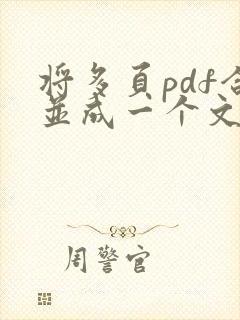 将多页pdf合
并成一个文
周警官